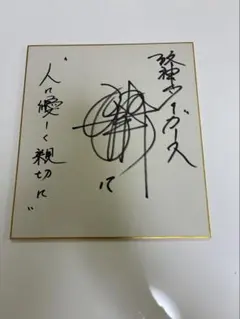 阪神タイガース
"人に優しく親切に"